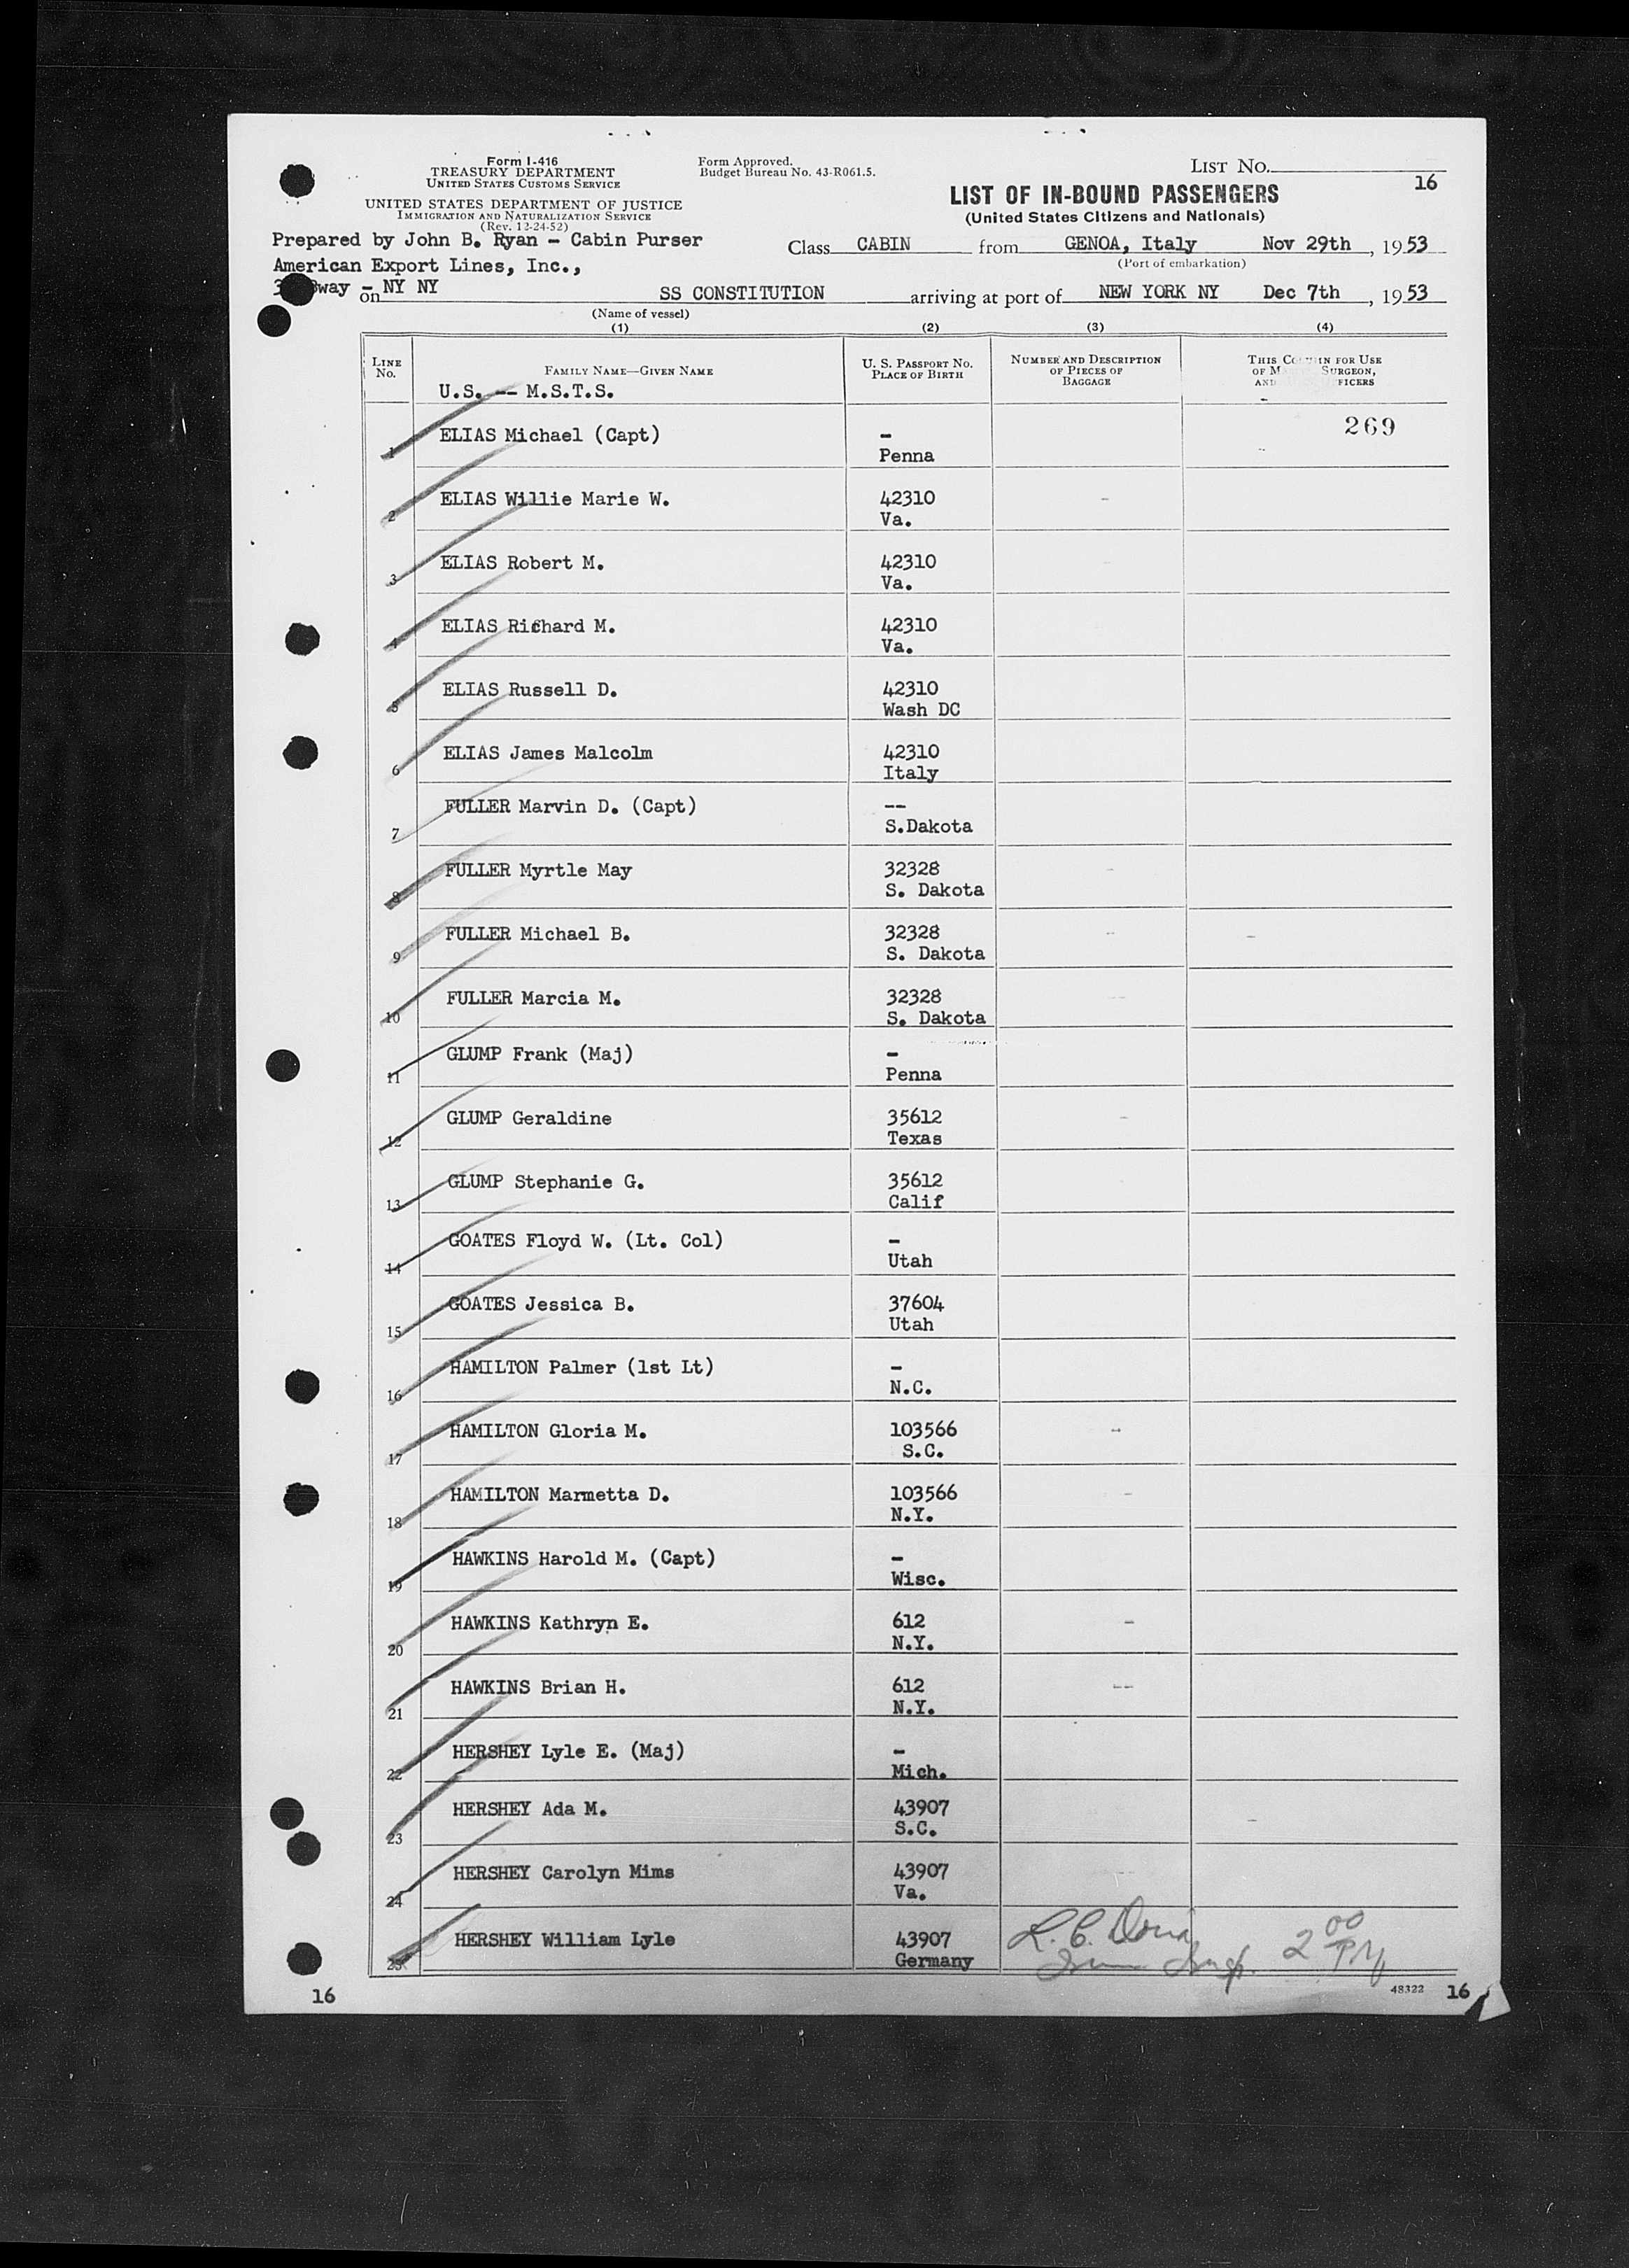 Form I-416
TREASURY DEPARTMENT
UNITED STATES CUSTOMS SERVICE
UNITED STATES DEPARTMENT OF JUSTICE
IMMIGRATION AND NATURALIZATION SERVICE
(Rev. 12-24-52)
Form Approved.
Budget Bureau No. 43-R061.5.
LIST No.
16
LIST OF IN-BOUND PASSENGERS
(United States Citizens and Nationals)
Prepared by John B. Ryan - Cabin Purser
American Export Lines, Inc.,
Bway - NY NY
Class CABIN from GENOA, Italy Nov 29th, 1953
(Port of embarkation)
on SS CONSTITUTION arriving at port of NEW YORK NY Dec 7th, 1953
(Name of vessel)
(1) (2) (3) (4)
LINE No.
FAMILY NAME—GIVEN NAME
U. S. PASSPORT No.
PLACE OF BIRTH
NUMBER AND DESCRIPTION
OF PIECES OF
BAGGAGE
THIS FOR USE
OF SURGEON,
AND
U.S. -- M.S.T.S.
269
1 ELIAS Michael (Capt) -
Penna
2 ELIAS Willie Marie W. 42310
Va.
3 ELIAS Robert M. 42310
Va.
4 ELIAS Richard M. 42310
Va.
5 ELIAS Russell D. 42310
Wash DC
6 ELIAS James Malcolm 42310
Italy
7 FULLER Marvin D. (Capt) --
S.Dakota
8 FULLER Myrtle May 32328
S. Dakota
9 FULLER Michael B. 32328
S. Dakota
10 FULLER Marcia M. 32328
S. Dakota
11 GLUMP Frank (Maj) -
Penna
12 GLUMP Geraldine 35612
Texas
13 GLUMP Stephanie G. 35612
Calif
14 GOATES Floyd W. (Lt. Col) -
Utah
15 GOATES Jessica B. 37604
Utah
16 HAMILTON Palmer (1st Lt) -
N.C.
17 HAMILTON Gloria M. 103566
S.C.
18 HAMILTON Marmetta D. 103566
N.Y.
19 HAWKINS Harold M. (Capt) -
Wisc.
20 HAWKINS Kathryn E. 612
N.Y.
21 HAWKINS Brian H. 612
N.Y.
22 HERSHEY Lyle E. (Maj) -
Mich.
23 HERSHEY Ada M. 43907
S.C.
24 HERSHEY Carolyn Mims 43907
Va.
25 HERSHEY William Lyle 43907
Germany
2 00 PM
16
48322 16